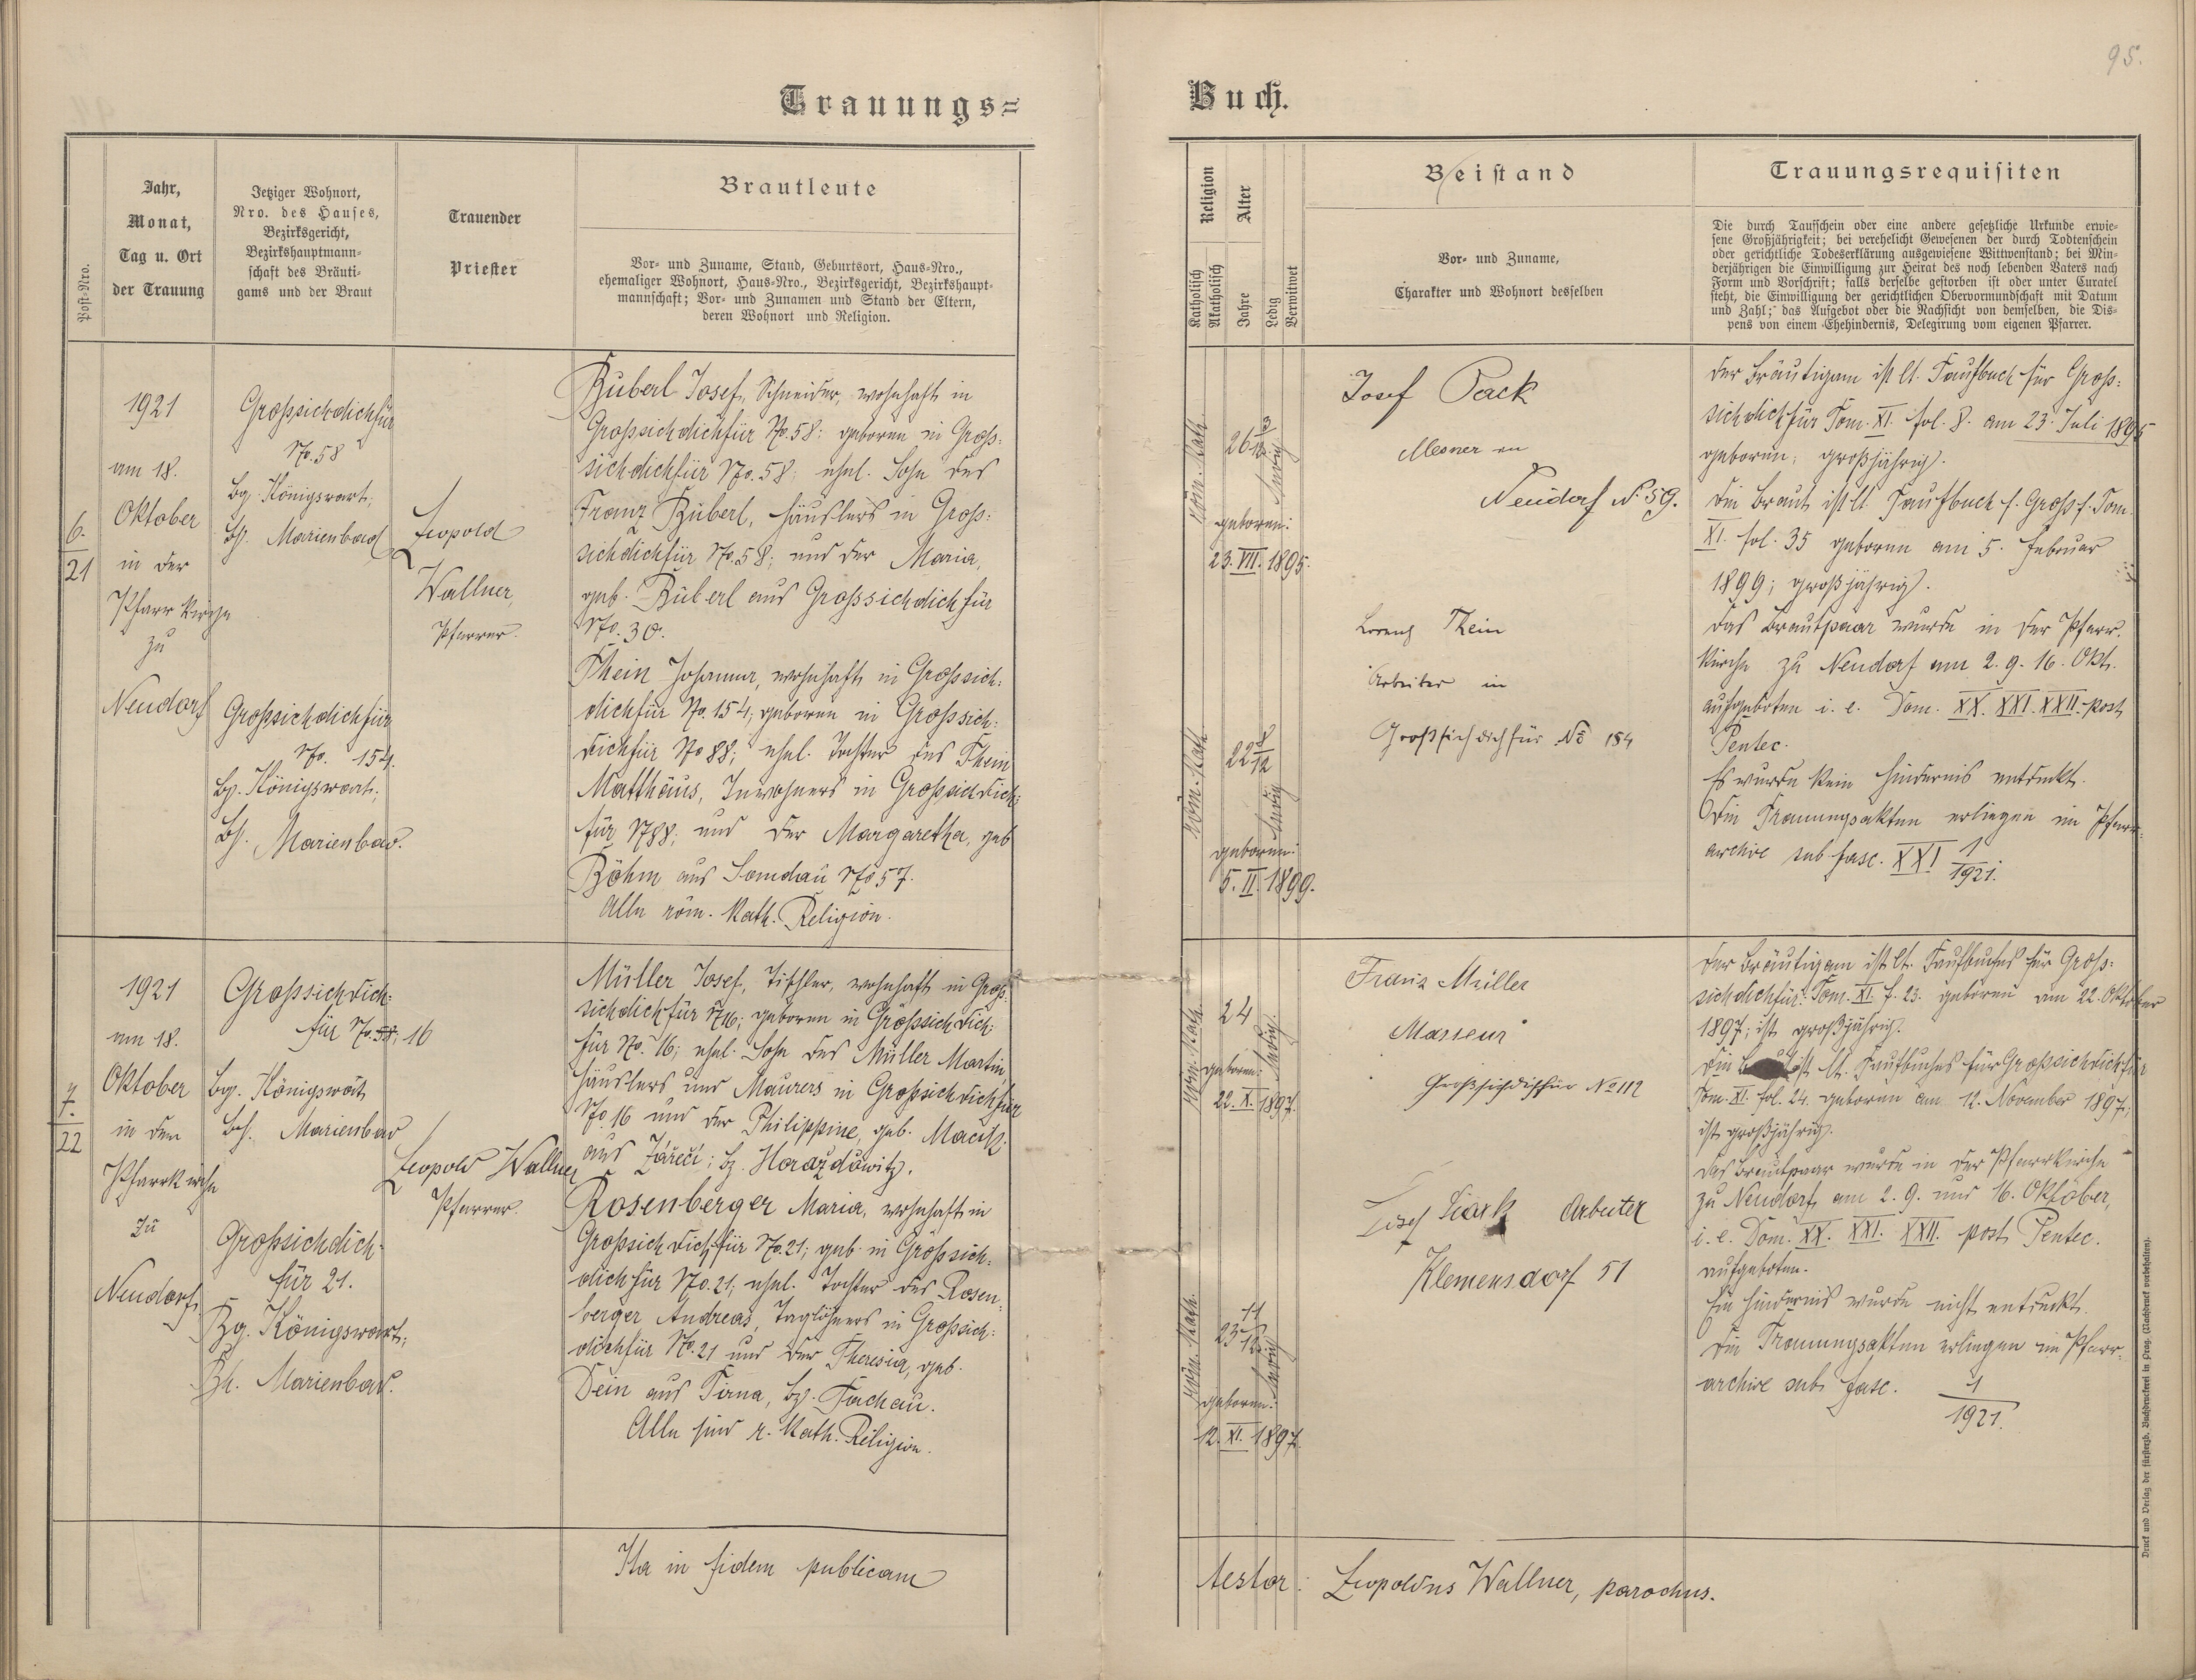 95.
Trauungs=
Buch.
Post-Nro.
Jahr,
Monat,
Tag u. Ort
der Trauung
Jetziger Wohnort,
Nro. des Hauses,
Bezirksgericht,
Bezirkshauptmann-
schaft des Bräuti-
gams und der Braut
Trauender
Priester
Brautleute
Vor- und Zuname, Stand, Geburtsort, Haus-Nro.,
ehemaliger Wohnort, Haus-Nro., Bezirksgericht, Bezirkshaupt-
mannschaft; Vor- und Zunamen und Stand der Eltern,
deren Wohnort und Religion.
Religion
Katholisch
Akatholisch
Alter
Jahre
Ledig
Verwitwet
Beistand
Vor- und Zuname,
Charakter und Wohnort desselben
Trauungsrequisiten
Die durch Taufschein oder eine andere gesetzliche Urkunde erwie-
sene Großjährigkeit; bei verehelicht Gewesenen der durch Todtenschein
oder gerichtliche Todeserklärung ausgewiesene Wittwenstand; bei Min-
derjährigen die Einwilligung zur Heirat des noch lebenden Vaters nach
Form und Vorschrift; falls derselbe gestorben ist oder unter Curatel
steht, die Einwilligung der gerichtlichen Obervormundschaft mit Datum
und Zahl; das Aufgebot oder die Nachsicht von demselben, die Dis-
pens von einem Ehehindernis, Delegirung vom eigenen Pfarrer.
6.
21
1921
am 18.
Oktober
in der
Pfarrkirche
zu
Neudorf
Grossichdichfür
No. 58
bg. Königswart,
bh. Marienbad
Grossichdichfür
No. 154.
bg. Königswart,
bh. Marienbad.
Leopold
Wallner,
Pfarrer.
Büberl Josef, Schneider, wohnhaft in
Grossichdichfür No. 58; geboren in Gros-
sichdichfür No. 58; ehel. Sohn des
Franz Büberl, Häuslers in Gros-
sichdichfür No. 58; und der Maria,
geb. Büberl aus Grossichdichfür
No. 30.
Thein Johanna, wohnhaft in Grossich-
dichfür No. 154; geboren in Grossich-
dichfür No 88; ehel. Tochter des Thein
Matthäus, Inwohners in Grossichdich-
für N 88; und der Margaretha, geb.
Böhm aus Somdau No 57.
Alle röm. kath. Religion.
röm. kath.
26 3/12
ledig
geboren:
23. VII. 1895.
röm. kath.
22 8/12
ledig
geboren:
5. II. 1899.
Josef Pack
Mesner in
Neudorf No 59.
Lorenz Thein
Arbeiter in
Großsichdichfür No 154
Der Bräutigam ist lt. Taufbuch für Gros-
sichdichfür Tom. XI. fol. 8. am 23. Juli 1895
geboren; großjährig.
Die Braut ist lt. Taufbuch f. Grossf. Tom.
XI. fol. 35 geboren am 5. Februar
1899; großjährig.
Das Brautpaar wurde in der Pfarr-
kirche zu Neudorf am 2. 9. 16. Okt.
aufgeboten i. e. Dom. XX. XXI. XXII. post
Pentec.
Es wurde kein Hindernis entdeckt.
Die Trauungsakten erliegen im Pfarr-
archive sub fasc. XXI 1/1921.
7.
22
1921
am 18.
Oktober
in der
Pfarrkirche
zu
Neudorf
Grossichdich-
für No. 58; 16
bg. Königswart
bh. Marienbad
Grossichdich-
für 21.
Bg. Königswart;
Bh. Marienbad.
Leopold Wallner
Pfarrer.
Müller Josef, Tischler, wohnhaft in Gros-
sichdichfür N 16; geboren in Grossichdich-
für No. 16; ehel. Sohn des Müller Martin,
Häuslers und Maurers in Grossichdichfür
No. 16 und der Philippine, geb.
aus Zářečí; bz. Horažďowitz.
Rosenberger Maria, wohnhaft in
Grossichdichfür No. 21; geb. in Grossich-
dichfür No. 21; ehel. Tochter des Rosen-
berger Andreas, Taglöhners in Grossich-
dichfür No. 21 und der Theresia, geb.
Dein aus Tirna, bz. Tachau.
Alle sind r. kath. Religion.
röm. kath.
24
ledig.
geboren:
22. X. 1897.
röm. kath.
23 11/12
ledig
geboren:
12. XI. 1897.
Franz Müller
Masseur
Großsichdichfür No 112
Josef Arbeiter
Klemensdorf 51
Der Bräutigam ist lt. Taufbuches für Gros-
sichdichfür Tom. XI. f. 23. geboren am 22. Oktober
1897; ist großjährig.
Die ist lt. Taufbuches für Grossichdichfür
Tom. XI. fol. 24. geboren am 12. November 1897;
ist großjährig.
Das Brautpaar wurde in der Pfarrkirche
zu Neudorf am 2. 9. und 16. Oktober,
i. e. Dom. XX. XXI. XXII. post Pentec.
aufgeboten.
Ein Hindernis wurde nicht entdeckt.
Die Trauungsakten erliegen im Pfarr-
archive sub fasc. 1/1921.
Ita in fidem publicam
testor: Leopoldus Wallner, parochus.
Druck und Verlag der fürsterzb. Buchdruckerei in Prag. (Nachdruck vorbehalten).